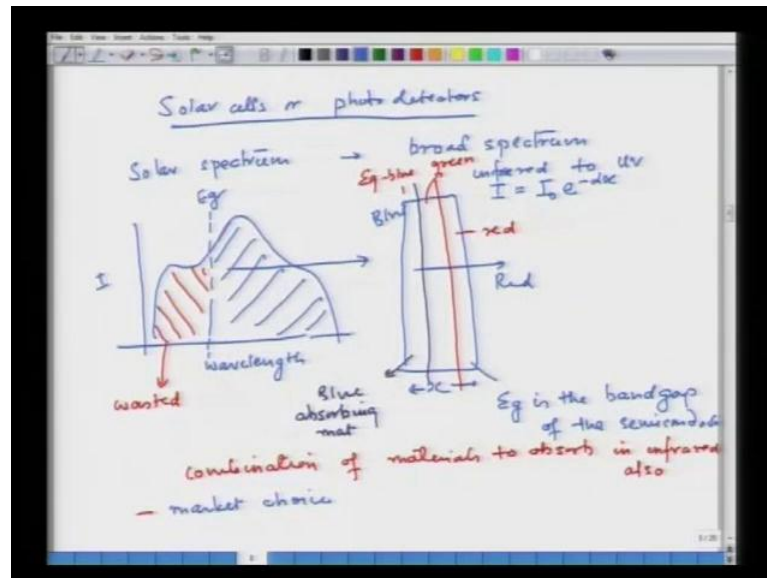 File Edit View Insert Actions Tools Help
Solar cells or photodetectors
Solar spectrum → broad spectrum
infrared to UV
I = I₀ e^-αx
Eg
Eg-blue
green
Blue
red
I
Red
wavelength
wasted
Blue
absorbing
mat
x
Eg is the bandgap
of the semiconduct
combination of materials to absorb in infrared
also
- market choice